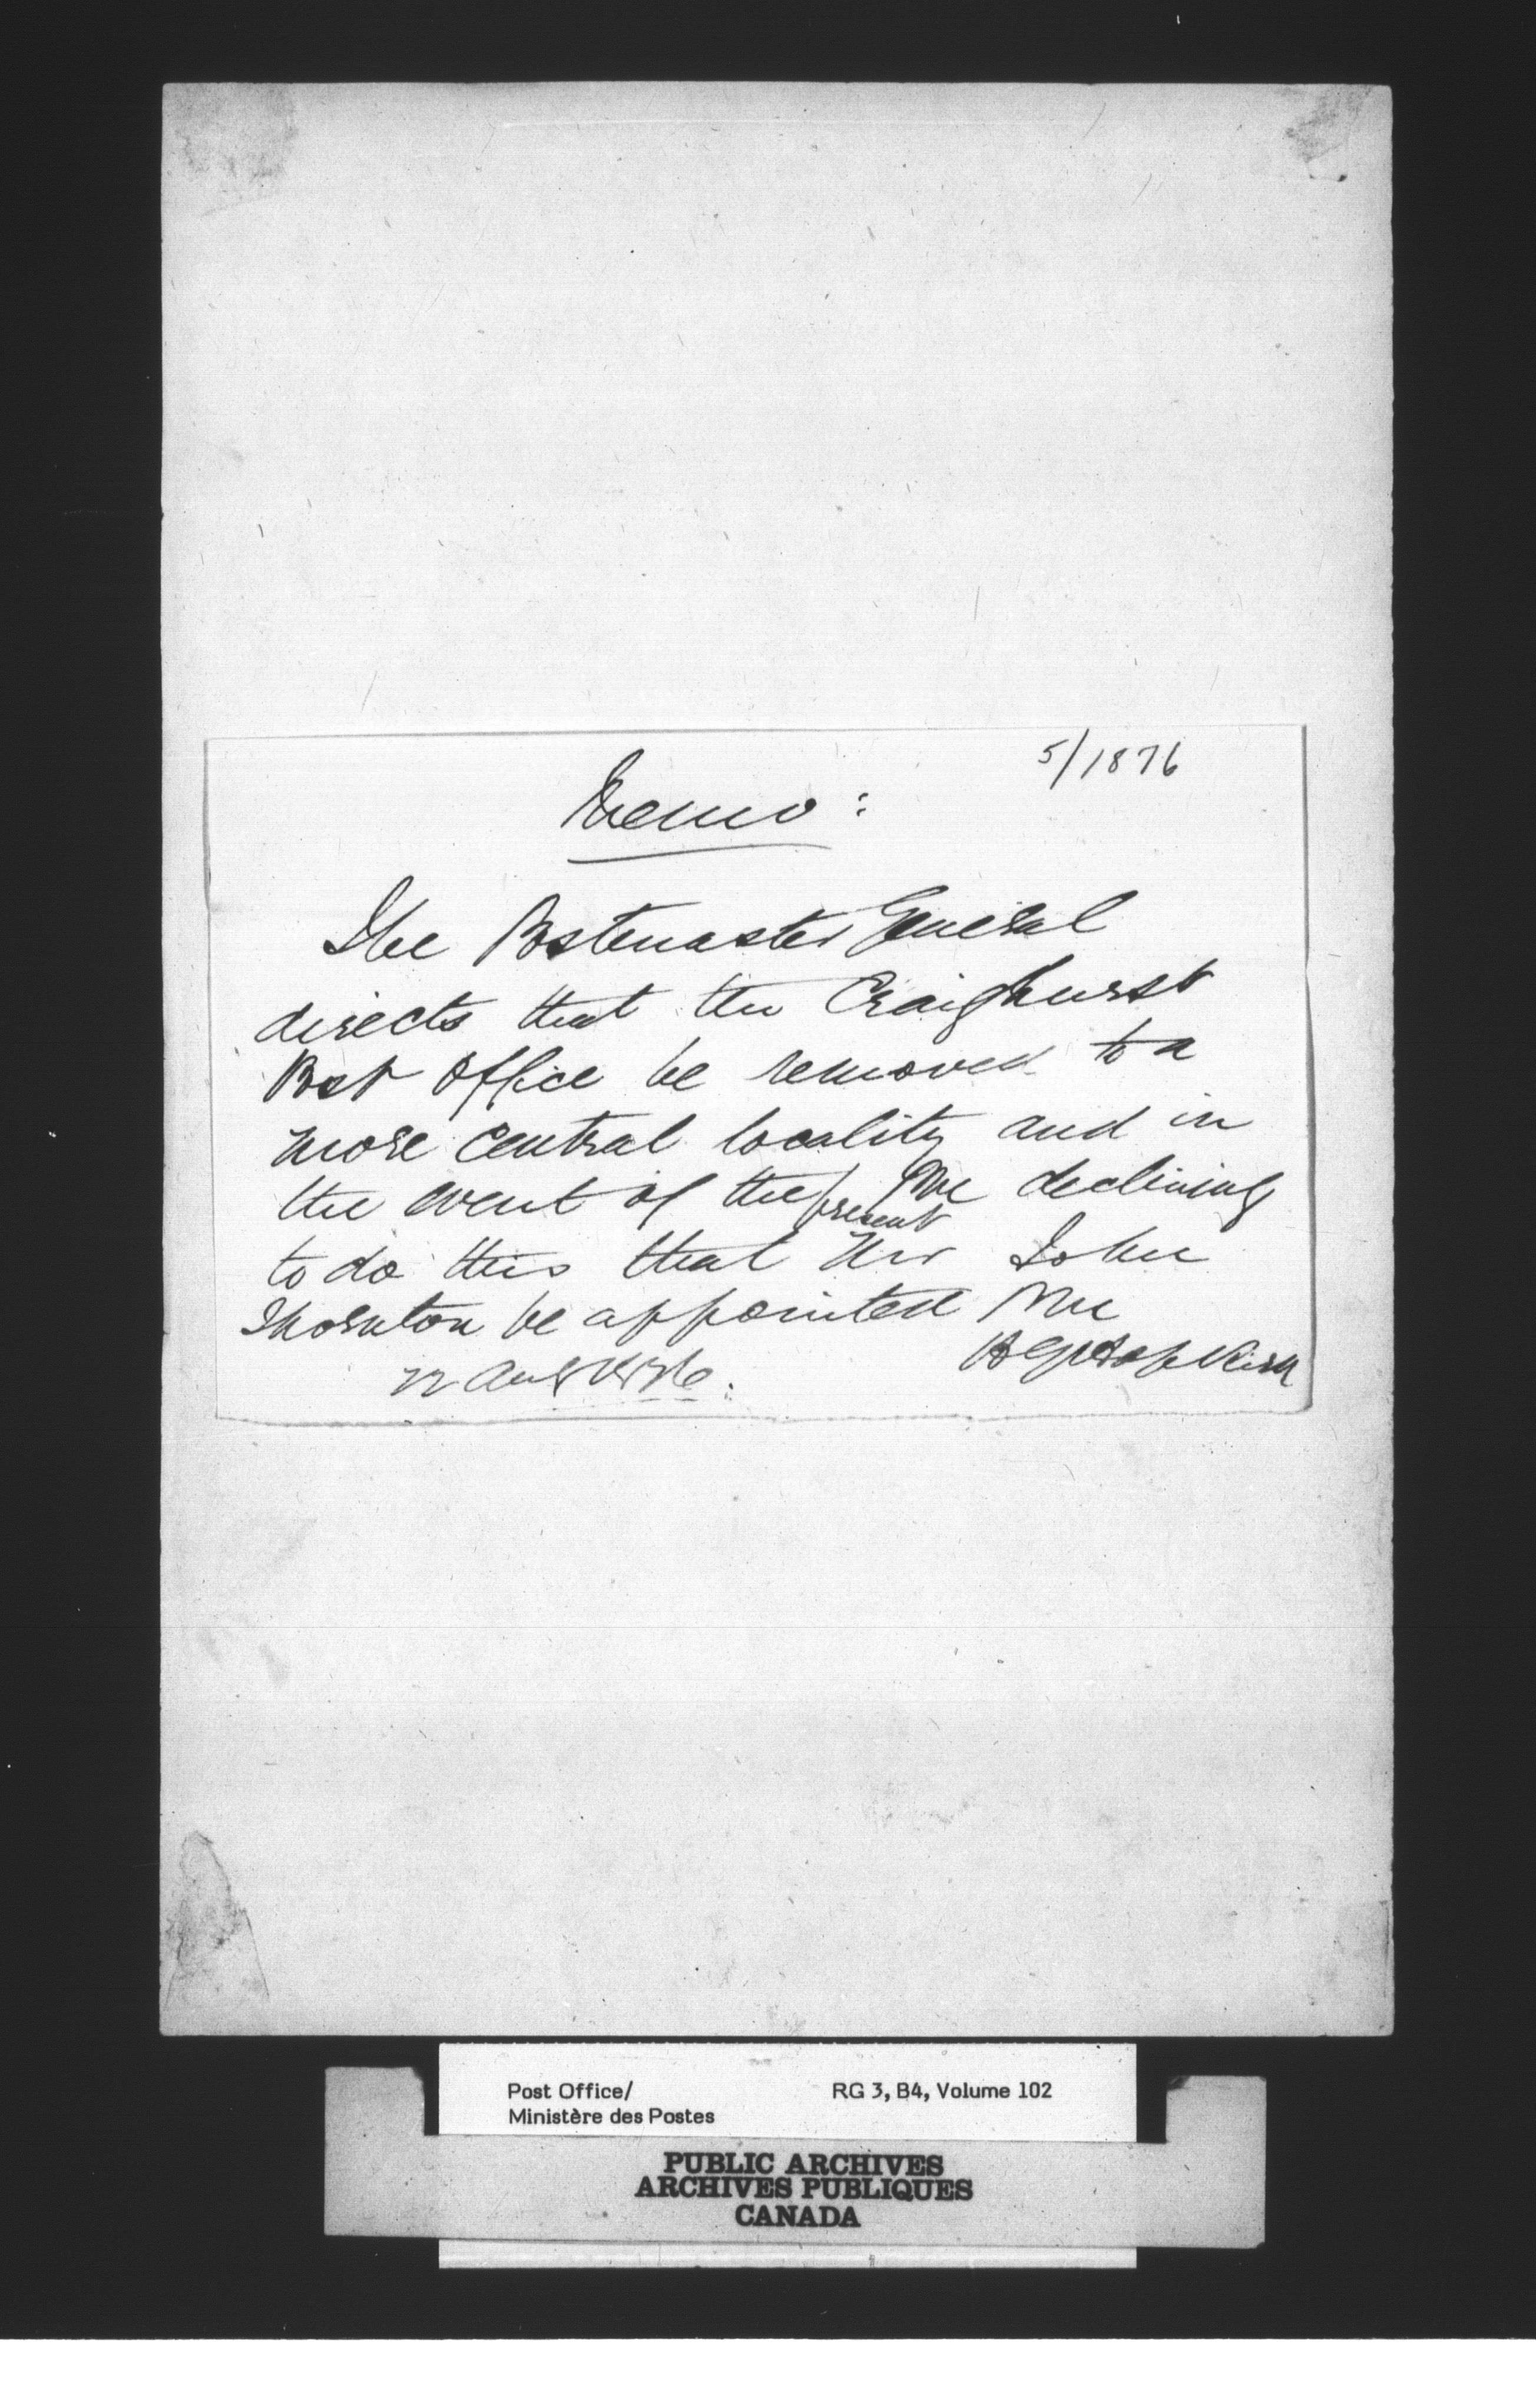 5/1876
Memo:
The Postmaster General
directs that the Craighurst
Post Office be removed to a
more central locality and in
the event of the present PM declining
to do this that Mr John
Thornton be appointed PM
22 Aug 1876.
Post Office/
Ministère des Postes
RG 3, B4, Volume 102
PUBLIC ARCHIVES
ARCHIVES PUBLIQUES
CANADA